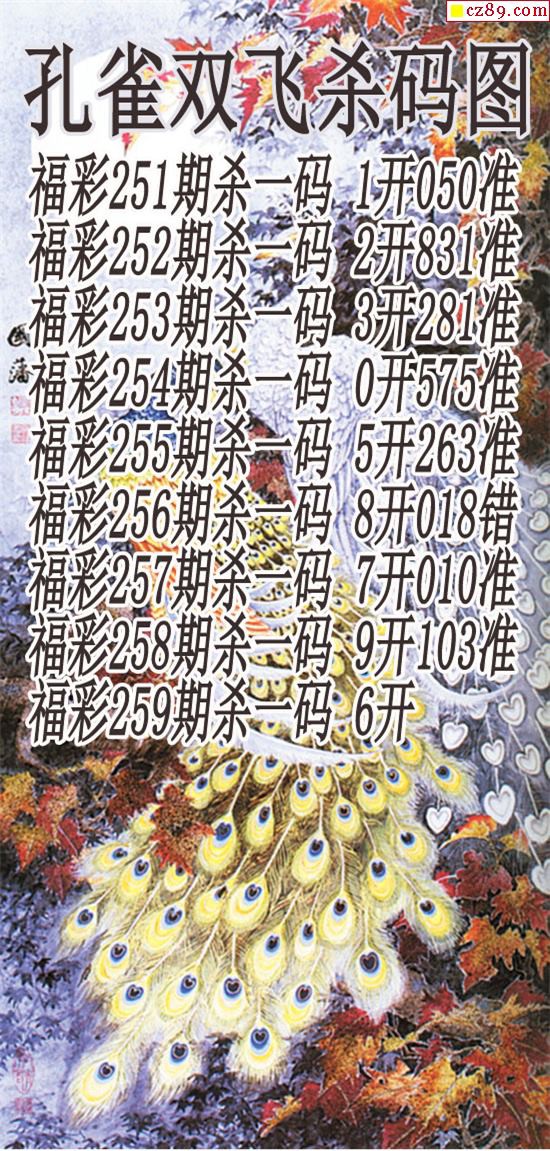 cz89.com
孔雀双飞杀码图
福彩251期杀一码 1开050准
福彩252期杀一码 2开831准
福彩253期杀一码 3开281准
福彩254期杀一码 0开575准
福彩255期杀一码 5开263准
福彩256期杀一码 8开018错
福彩257期杀一码 7开010准
福彩258期杀一码 9开103准
福彩259期杀一码 6开